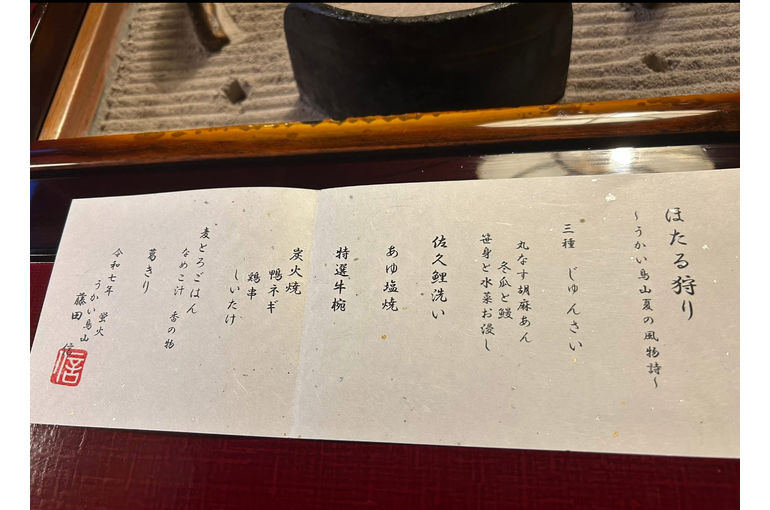 ほたる狩り
～うかい鳥山夏の風物詩～
三種 じゅんさい
丸なす胡麻あん
冬瓜と鰻
笹身と水菜お浸し
佐久鯉洗い
あゆ塩焼
特選牛椀
炭火焼
鴨ネギ
鶏串
しいたけ
麦とろごはん
なめこ汁 香の物
葛きり
令和七年 蛍火
うかい鳥山
藤田 信
信